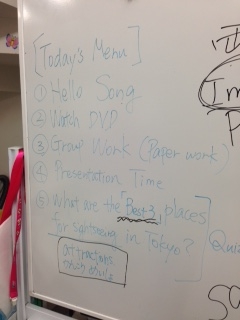 [Today's Menu]
① Hello Song
② Watch DVD
③ Group Work (Paper work)
④ Presentation Time
⑤ What are the 「Best 3」 places
for sightseeing in Tokyo?
attractions